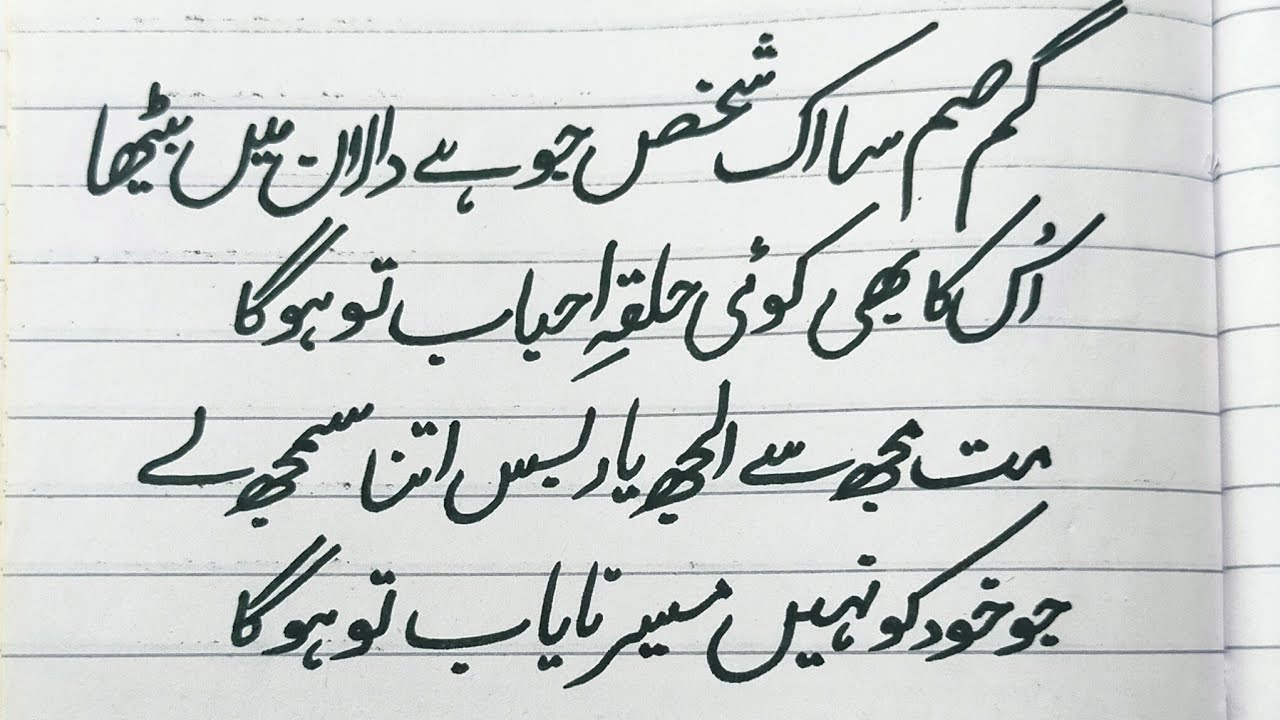 گم صم سا اک شخص جو ہے دالان میں بیٹھا
اُس کا بھی کوئی حلقہِ احباب تو ہوگا
مت مجھ سے الجھ یار بس اتنا سمجھ لے
جو خود کو نہیں میسر نایاب تو ہوگا